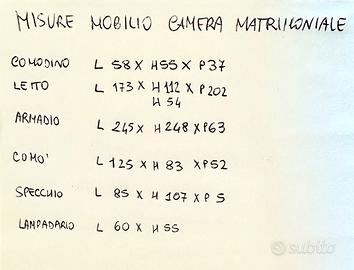 MISURE MOBILIO CAMERA MATRIMONIALE
COMODINO L 58 X H55 X P37
LETTO L 173 X H 112 X P202
H 54
ARMADIO L 245 X H 248 X P63
COMO' L 125 X H 83 X P52
SPECCHIO L 85 X H 107 X P 5
LAMPADARIO L 60 X H 55
subito